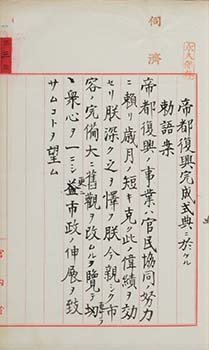 伺済
帝都復興完成式典ニ於ケル
勅語案
帝都復興ノ事業ハ官民協同ノ努力
ニ頼リ歳月ノ短キ克ク此ノ偉績ヲ効
セリ朕深ク之ヲ懌フ朕今親シク市
容ノ完備大ニ舊觀ヲ改ムルヲ覽テ
衆心ヲ一ニシ益市政ノ伸展ヲ致
サムコトヲ望ム
宮内省